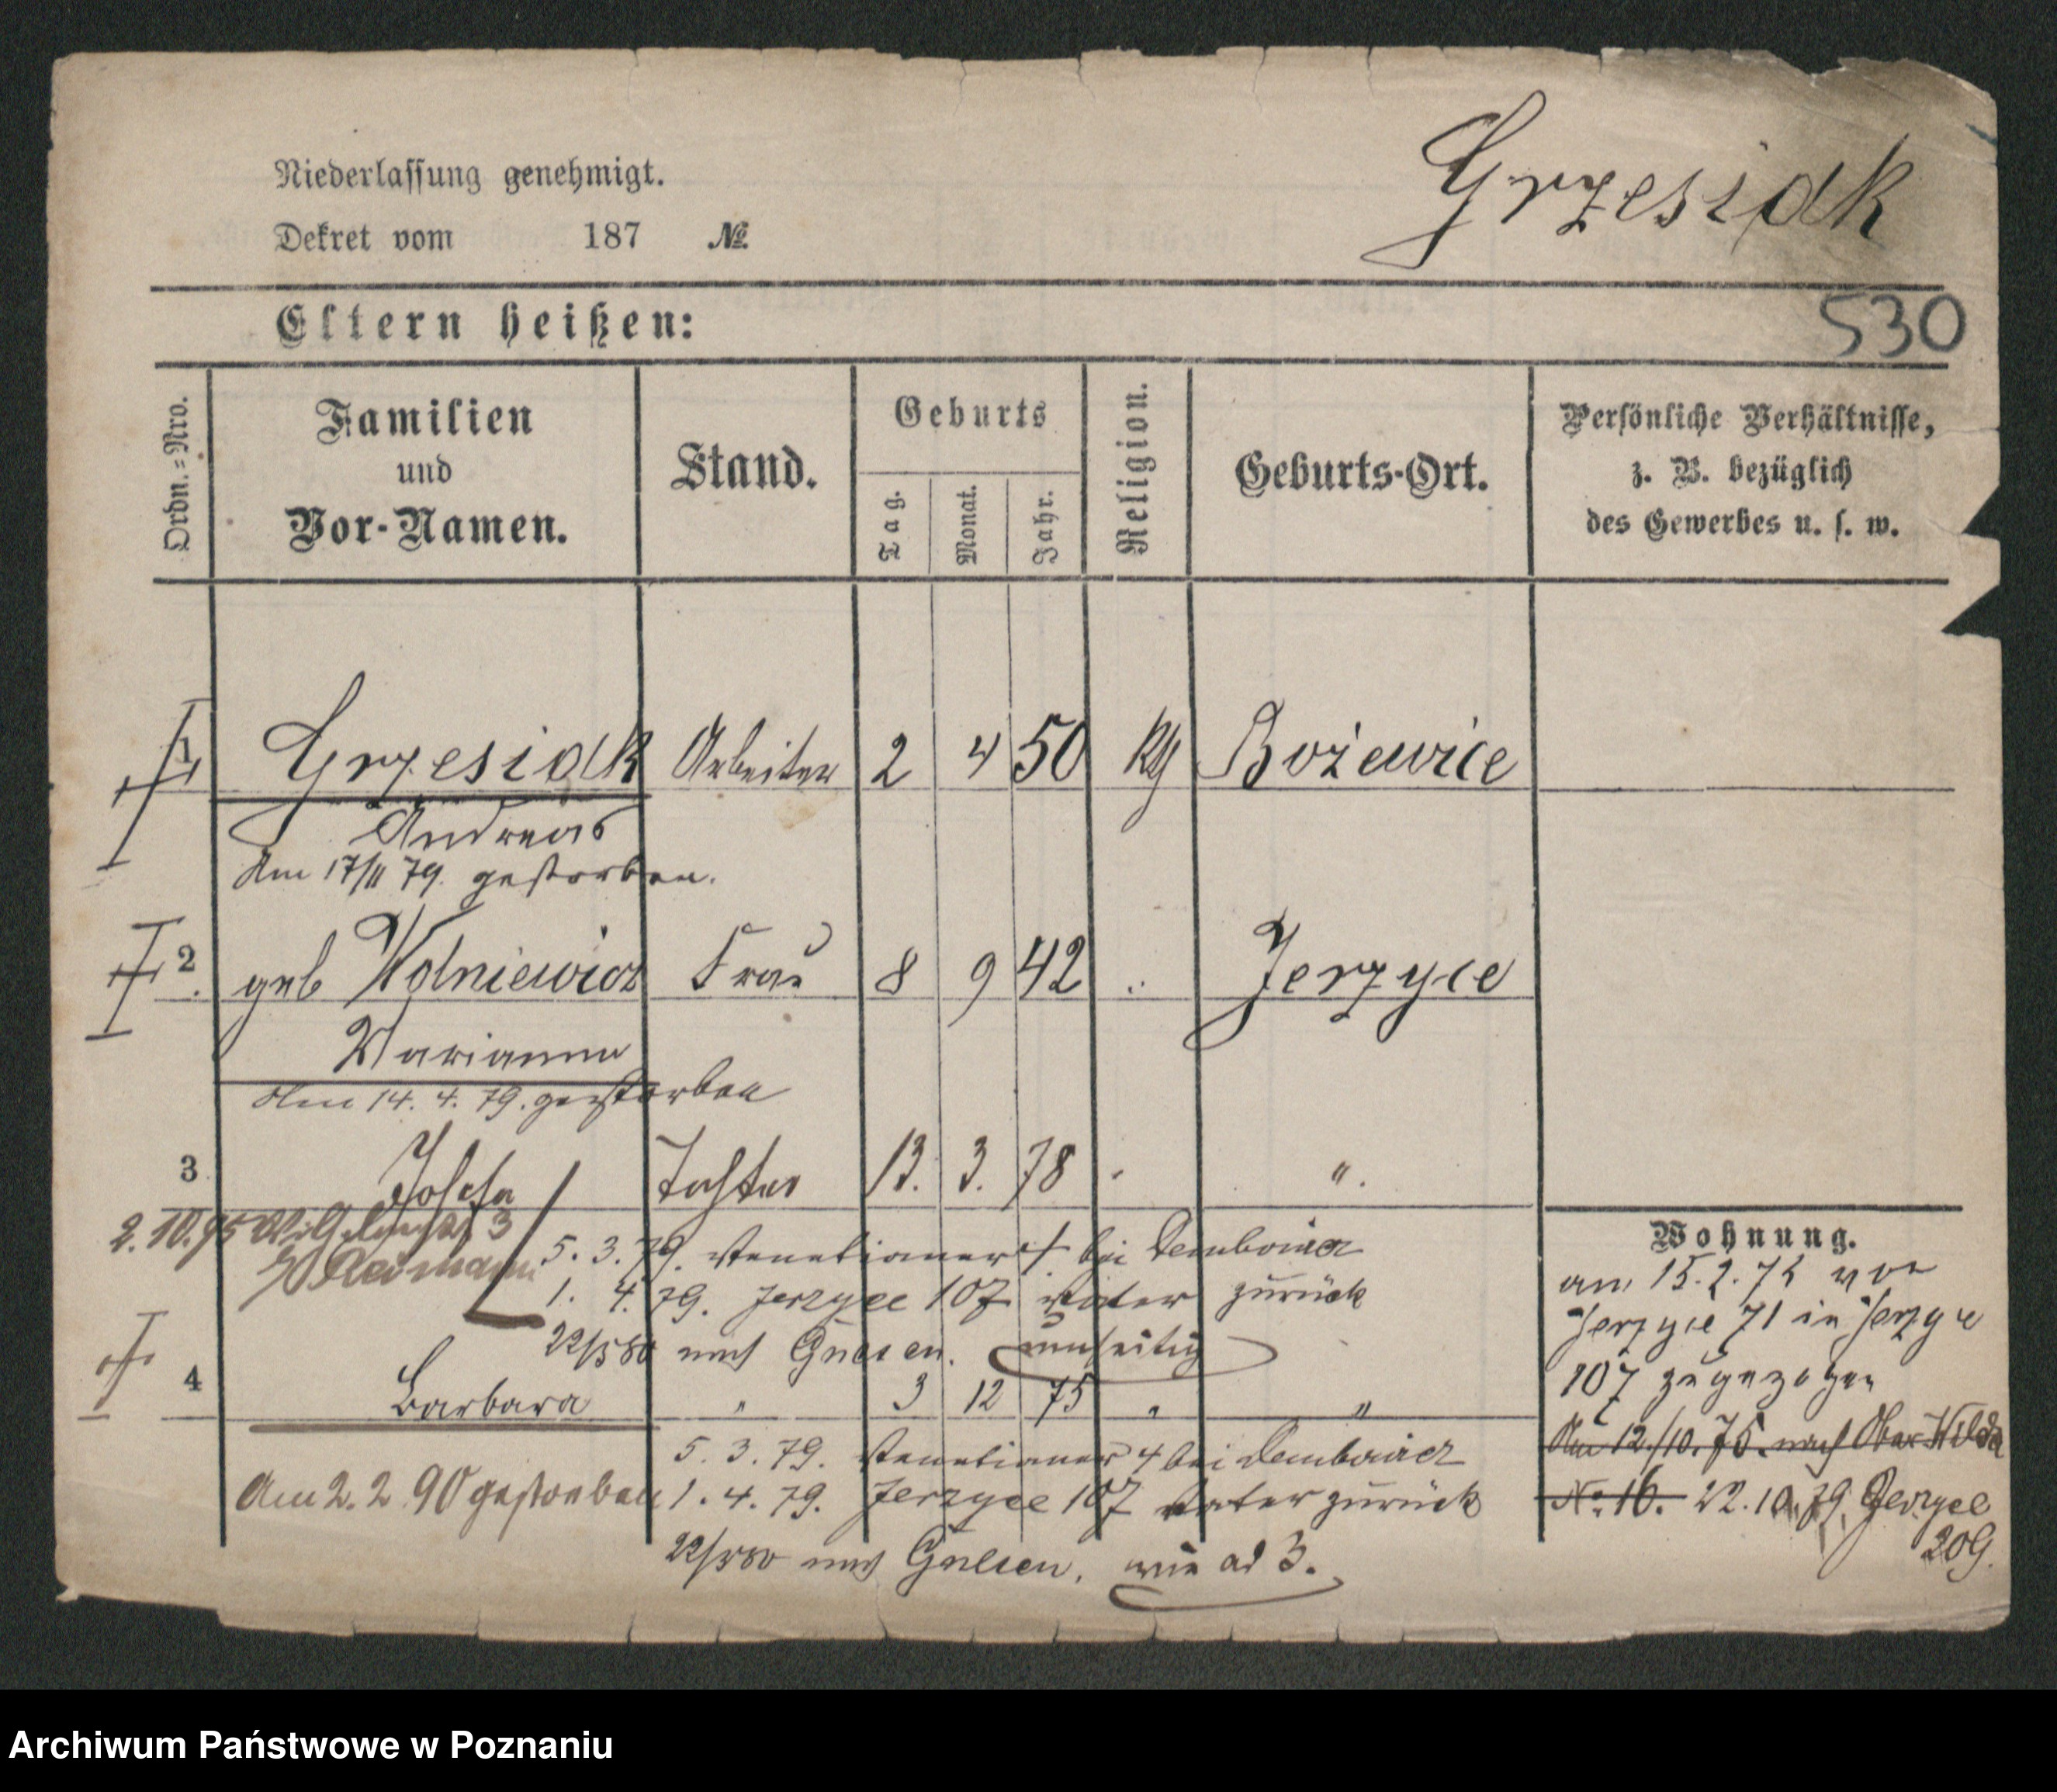 Niederlassung genehmigt.
Dekret vom 187 No.
Grzesiak
530
Eltern heißen:
Ordn.=Nro.
Familien
und
Vor-Namen.
Stand.
Geburts
Tag.
Monat.
Jahr.
Religion.
Geburts-Ort.
Persönliche Verhältnisse,
z. B. bezüglich
des Gewerbes u. s. w.
1 Grzesiak Arbeiter 2 4 50 Bożewice
Andreas
Am 17/II 79. gestorben.
2 geb Wolniewicz Frau 8 9 42 Jerzyce
Marianna
Am 14. 4. 79. gestorben
3 Josefa Tochter 13. 3. 78 " ".
2.10.95 3
5. 3. 79. Venetianer bei Dembowicz
1. 4. 79. Jerzyce 107 zurück
22/5 80 nach Gnesen. umseitig
4 Barbara " 3 12 75 " "
5. 3. 79. Venetianer 4 bei Dembowicz
Am 2. 2 90 gestorben 1. 4. 79. Jerzyce 107 zurück
22/5 80 nach Gnesen. wie ad 3.
Wohnung.
am 15. 2. 75 von
Jerzyce 71 in Jerzyce
107 zugezogen
Am 12./10. 75. nach Ober Wilda
No. 16. 22. 10. 79. Jerzyce
209.
Archiwum Państwowe w Poznaniu